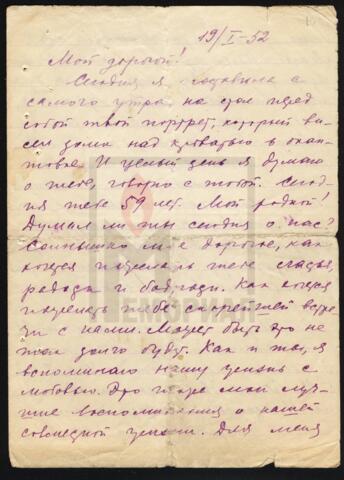 19/I-52
Мой дорогой!
Сегодня я поставила с
самого утра на стол перед
собой твой портрет, который ви-
сел дома над кроватью в окан-
товке. И целый день я думаю
о тебе, говорю с тобой. Сегод-
ня тебе 59 лет. Мой родной!
Думал ли ты сегодня о нас?
Солнышко мое дорогое, как
хочется пожелать тебе счастья,
радости и бодрости. Как хочется
пожелать тебе скорейшей встре-
чи с нами. Может быть это не
так долго будет. Как и ты, я
вспоминаю нашу жизнь с
любовью. Это и мои луч-
шие воспоминания о нашей
совместной жизни. Для меня
МЕМОРИАЛ